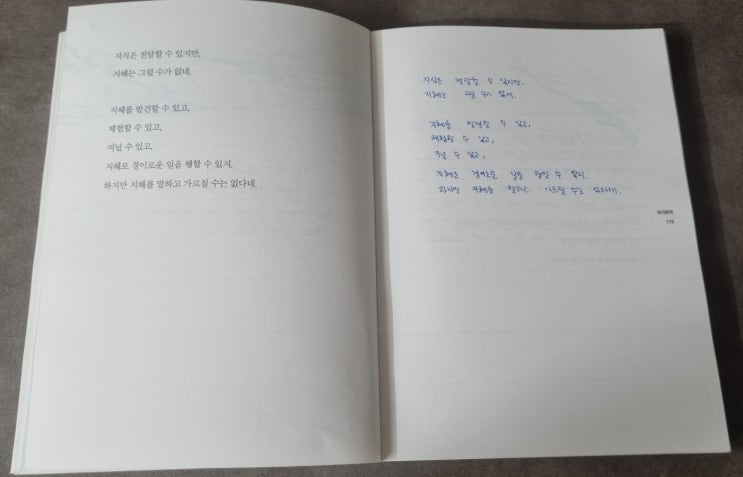 지식은 전달할 수 있지만,
지혜는 그럴 수가 없네.
지혜를 발견할 수 있고,
체험할 수 있고,
지닐 수 있고,
지혜로 경이로운 일을 행할 수 있지.
하지만 지혜를 말하고 가르칠 수는 없다네.
지식은 전달할 수 있지만,
지혜는 그럴 수가 없네.
지혜를 발견할 수 있고,
체험할 수 있고,
지닐 수 있고,
지혜로 경이로운 일을 행할 수 있지.
하지만 지혜를 말하고 가르칠 수는 없다네.